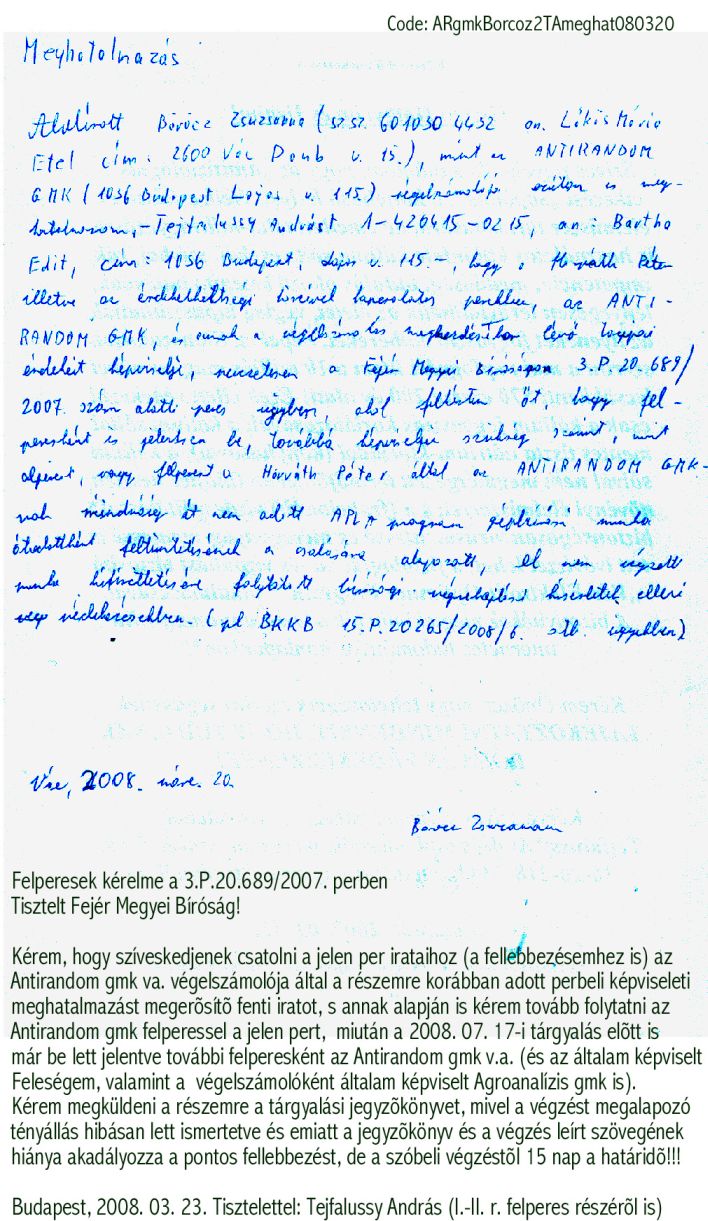 Code: ARgmkBorcoz2TAmeghat080320
Meghatalmazás
Alulírott Böröcz Zsuzsanna (sz.sz. 601030 4452 an. Lőkös Mária
Etel cím: 2600 Vác Domb u. 15.), mint az ANTIRANDOM
GMK (1036 Budapest Lajos u. 115.) végelszámolója ezúton is meg-
hatalmazom, - Tejfalussy Andrást 1-420415-0215, an: Bartha
Edit, cím: 1036 Budapest, Lajos u. 115. -, hogy a Horváth Péter
illetve az érdekeltségi körével kapcsolatos perekben, az ANTI-
RANDOM GMK, és annak a végelszámolás megkezdésekor lévő tagjai
érdekeit képviselje, nevezetesen a Fejér Megyei Bíróságon 3.P.20.689/
2007. szám alatti peres ügyben, ahol felkértem őt, hogy fel-
peresként is jelentsen be, továbbá képviseljen szükség szerint, mint
alperest, vagy felperest a Horváth Péter által az ANTIRANDOM GMK-
nak mindmáig át nem adott APLA program gépírásos munka
átvettként feltüntetésének a csalására alapozott, el nem végzett
munka kifizettetésére folytatott bírósági végrehajtási kísérletek elleni
védekezésekben. (pl BKKB 15.P.20265/2008/6. stb. ügyekben)
Vác, 2008. márc. 20.
Böröcz Zsuzsanna
Felperesek kérelme a 3.P.20.689/2007. perben
Tisztelt Fejér Megyei Bíróság!
Kérem, hogy szíveskedjenek csatolni a jelen per irataihoz (a fellebbezésemhez is) az
Antirandom gmk va. végelszámolója által a részemre korábban adott perbeli képviseleti
meghatalmazást megerõsítõ fenti iratot, s annak alapján is kérem tovább folytatni az
Antirandom gmk felperessel a jelen pert, miután a 2008. 07. 17-i tárgyalás elõtt is
már be lett jelentve további felperesként az Antirandom gmk v.a. (és az általam képviselt
Feleségem, valamint a végelszámolóként általam képviselt Agroanalízis gmk is).
Kérem megküldeni a részemre a tárgyalási jegyzõkönyvet, mivel a végzést megalapozó
tényállás hibásan lett ismertetve és emiatt a jegyzõkönyv és a végzés leírt szövegének
hiánya akadályozza a pontos fellebbezést, de a szóbeli végzéstõl 15 nap a határidõ!!!
Budapest, 2008. 03. 23. Tisztelettel: Tejfalussy András (I.-II. r. felperes részérõl is)